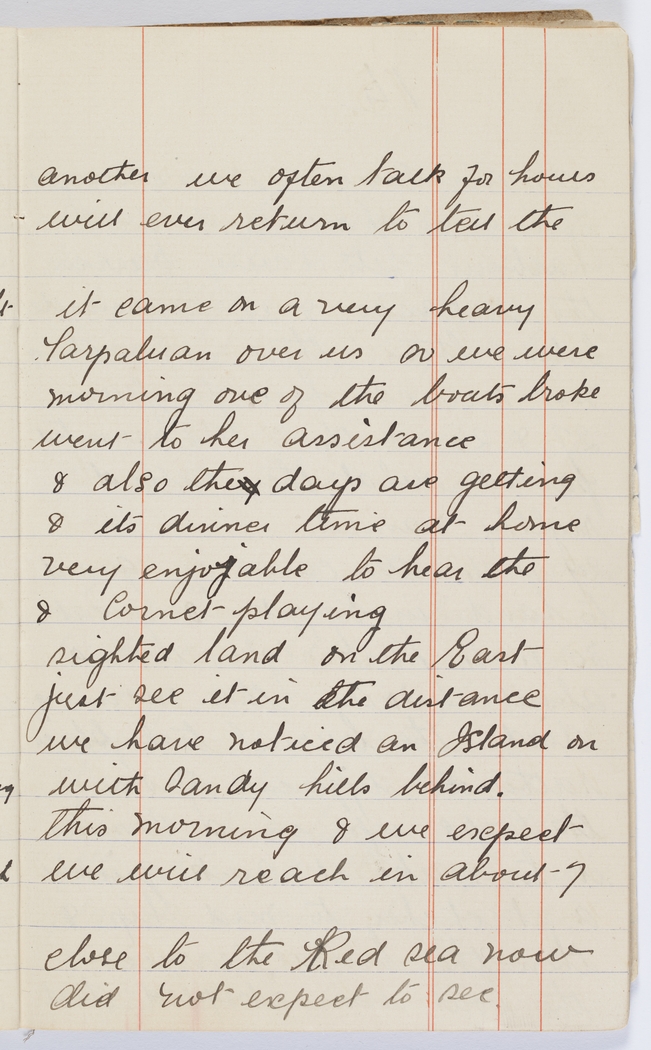 another we often talk for hours
will ever return to tell the
it came on a very heavy
Tarpaluan over us or we were
morning one of the boats broke
went to her assistance
& also the days are getting
& its dinner time at home
very enjoyable to hear the
& Cornet playing
sighted land on the East
just see it in the distance
we have noticed an Island on
with Sandy hills behind.
this morning & we expect
we will reach in about 7
close to the Red sea now
did not expect to see.